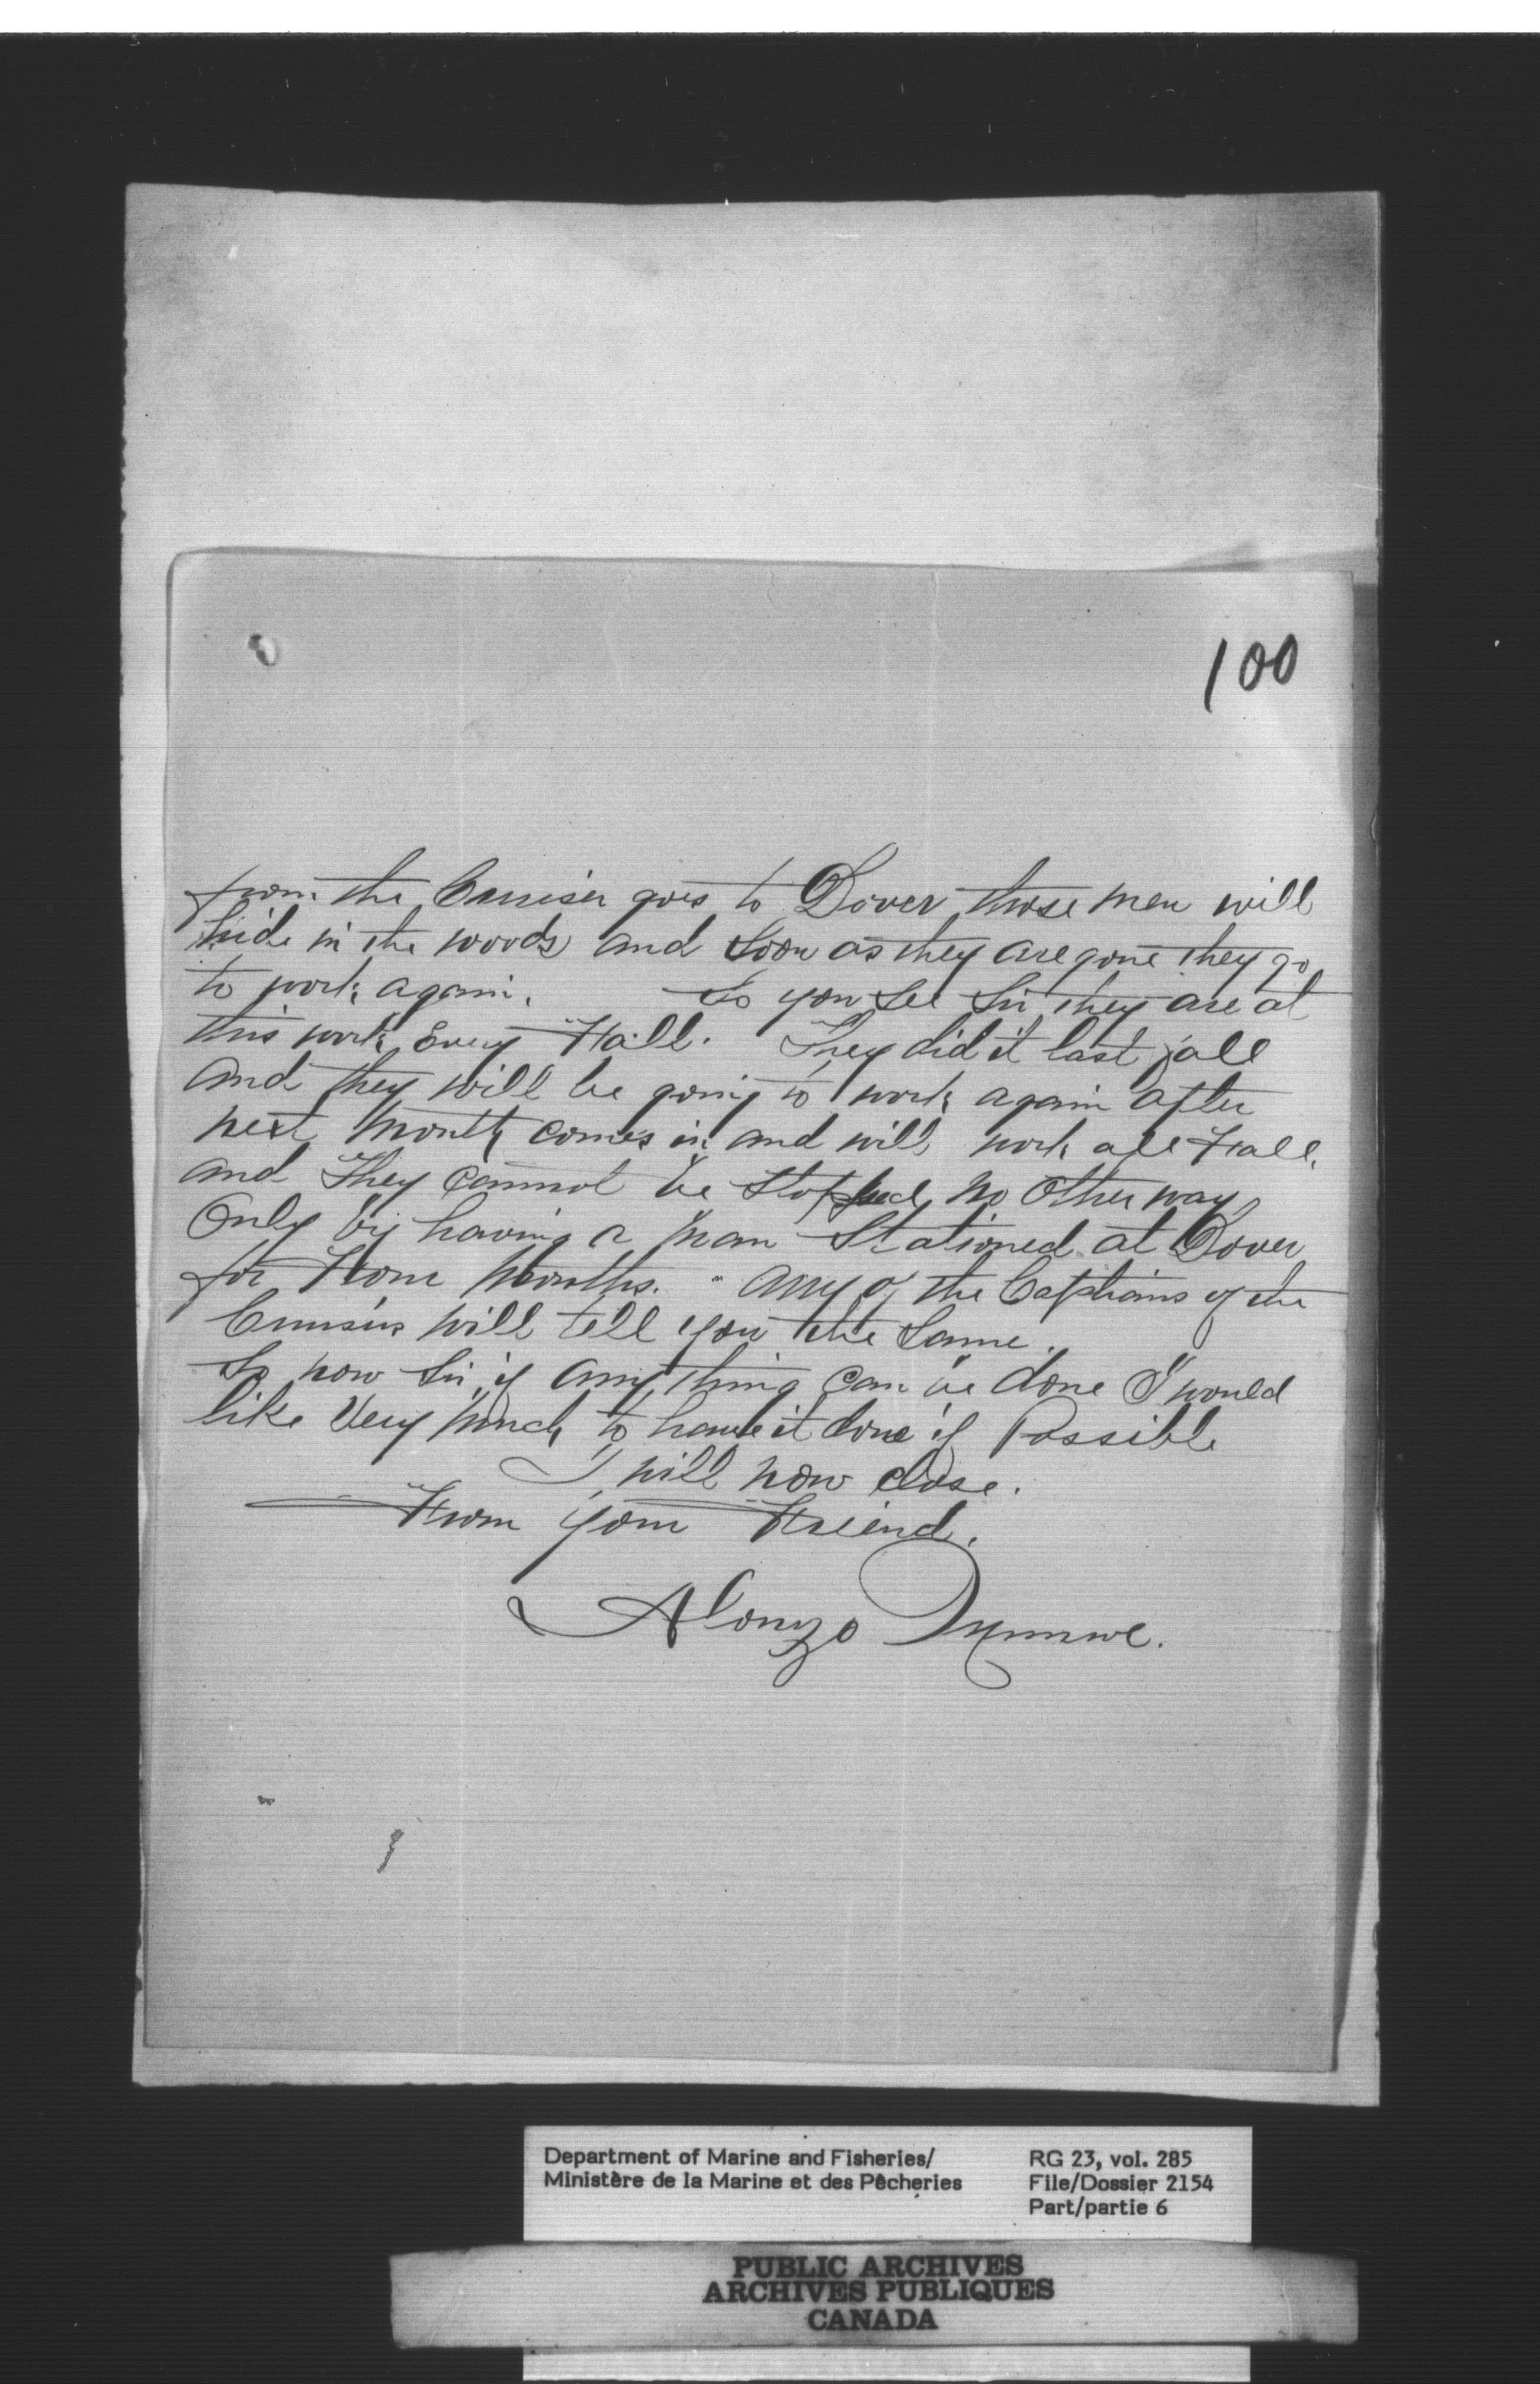 100
from the Cruiser goes to Dover those men will
hide in the woods and soon as they are gone they go
to work again. So you see Sir they are at
this work Every Fall. They did it last fall
and they will be going to work again after
next month comes in and will work all Fall.
and They cannot be stopped no other way
Only by having a man Stationed at Dover
for Four Months. any of the Captains of the
Cruisers will tell you the same.
So now Sir if any thing can be done I would
like Very much to have it done if Possible
I will now close.
From your Friend.
Alonzo
Department of Marine and Fisheries/
Ministère de la Marine et des Pêcheries
RG 23, vol. 285
File/Dossier 2154
Part/partie 6
PUBLIC ARCHIVES
ARCHIVES PUBLIQUES
CANADA